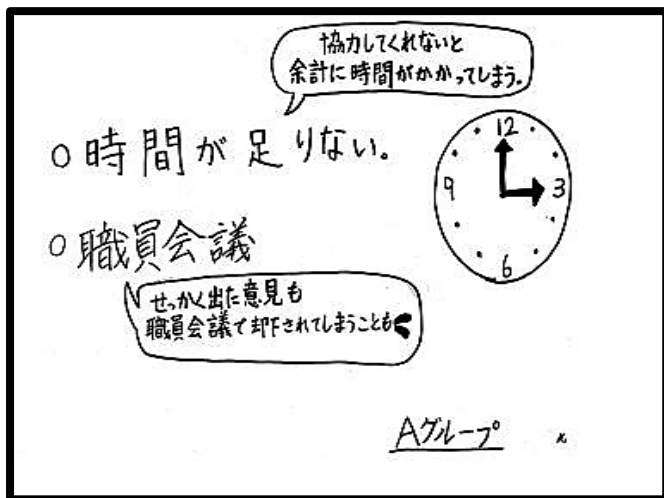 協力してくれないと
余計に時間がかかってしまう。
○時間が足りない。
12
9
3
6
○職員会議
せっかく出た意見も
職員会議で却下されてしまうことも
Aグループ